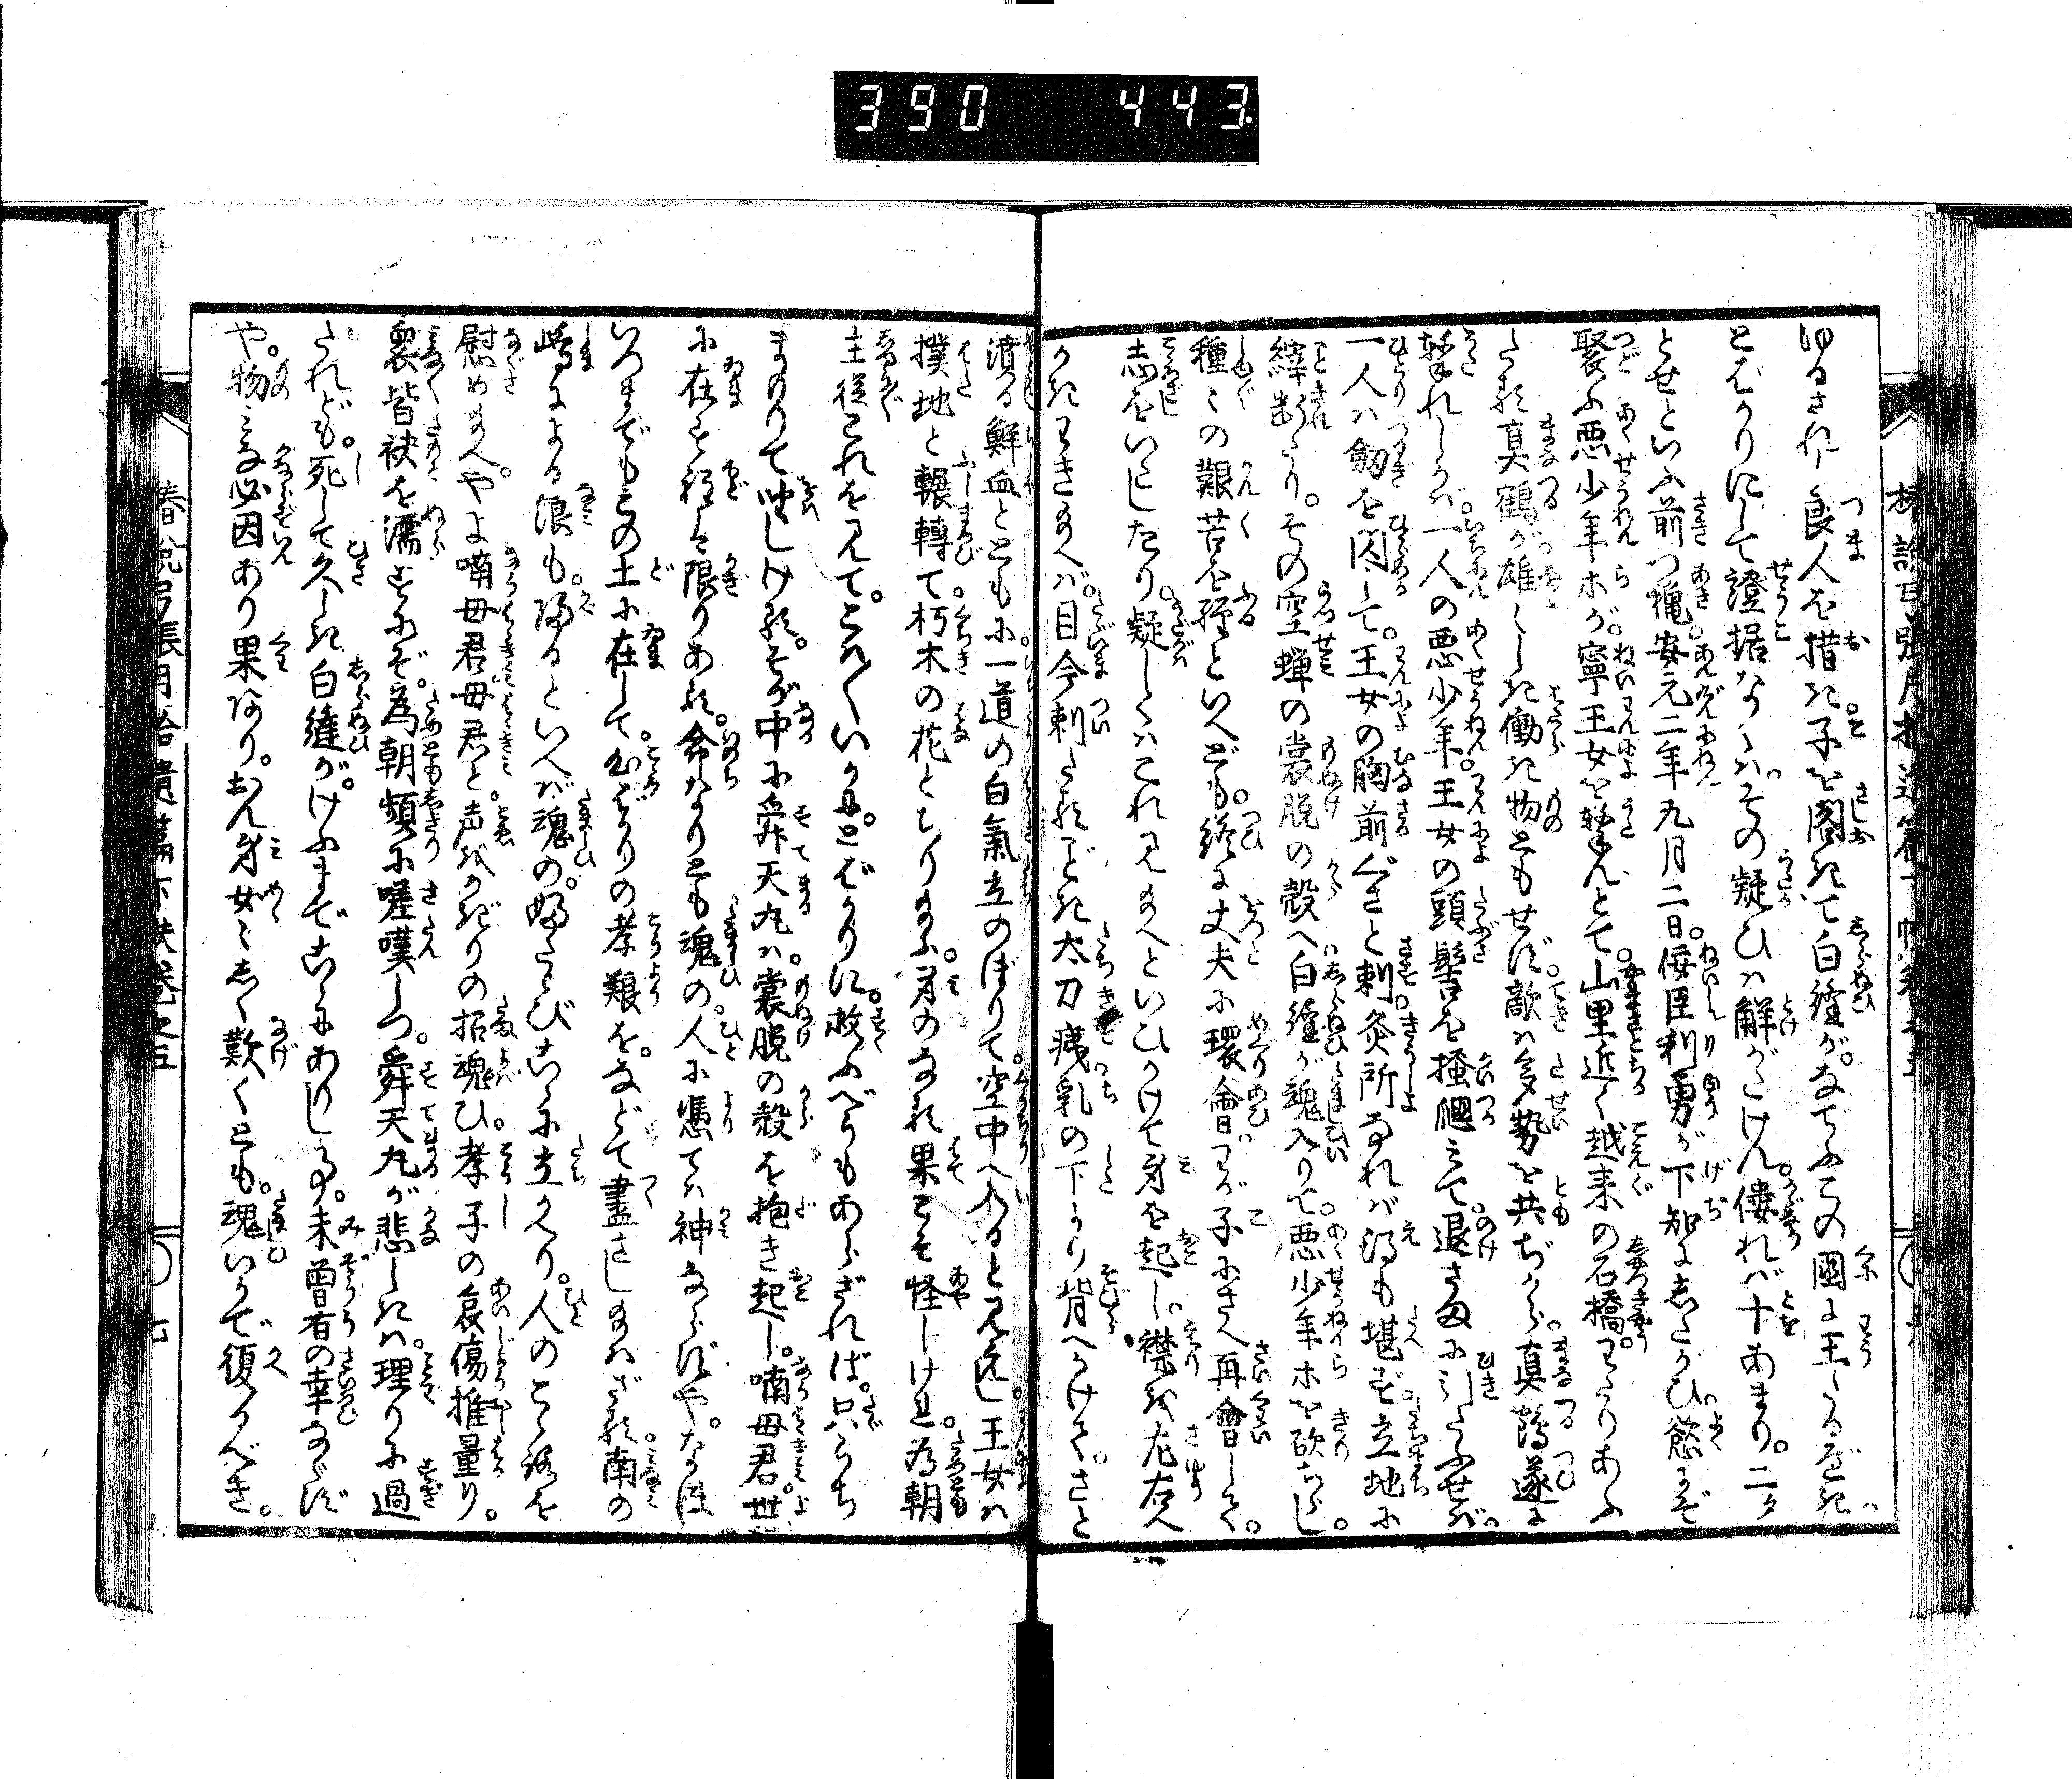 390 443
ゆるされし良人を措き子を閣きて白縫がなでふこの國に王たるべき
とばかりにして證据なくはその疑ひは解がたけん僂れば十あまり二タ
とせといふ前つ穐安元二年九月二日佞臣利勇が下知にしたがひ慾にぞ
聚ふ悪少年ホが寧王女を撃んとて山里近く越来の石橋わたりあふ
たる真鶴が雄々しき働き物ともせず敵は多勢を共ぢから真鶴遂に
撃れしかば一人の悪少年王女の頭髻を掻𢌞みて退さまに引たふせば
一人は劔を閃して王女の胸前ぐさと刺灸所なれば得も堪ず立地に
縡断たりその空蝉の裳脱の殻へ白縫が魂入りて悪少年ホを砍ちらし
種々の艱苦を經といへども終に丈夫に環會わが子にさへ再會して
志をいたしたり疑しくはこれ見給へといひかけて身を起し襟を左右へ
かきわき給へば目今刺たるごとき太刀痍乳の下より背へかけてさと
濆る鮮血とともに一道の白氣立のぼりて空中へ入ると見えし王女は
撲地と輾轉て朽木の花とちり給ふ身のなる果こそ怪しけれ為朝
主従これを見てこは〳〵いかにとばかりに救ふべうもあらざれば只うち
まもりて呆しけるそが中に舜天丸は裳脱の殻を抱き起し喃母君世
に在す程は限りある命なりとも魂の人に憑ては神ならずやなほ
いつまでもこの土に在して心ばかりの孝養をなどて盡さし給はざる南の
嶋による浪も帰るといへば魂のふたゝびこゝに立かへり人のこゝろを
慰め給へやよ喃母君母君と声をかぎりの招魂ひ孝子の哀傷推量り
衆皆袂を濡すにぞ為朝頻に嗟嘆しつ舜天丸が悲しきは理りに過
たれども死して久しき白縫がけふまでこゝにありし事未曾有の幸ならず
や物みな必因あり果ありおん身女々しく歎くとも魂いかで復るべき
春説弓張月拾遺篇下帙巻之五
七